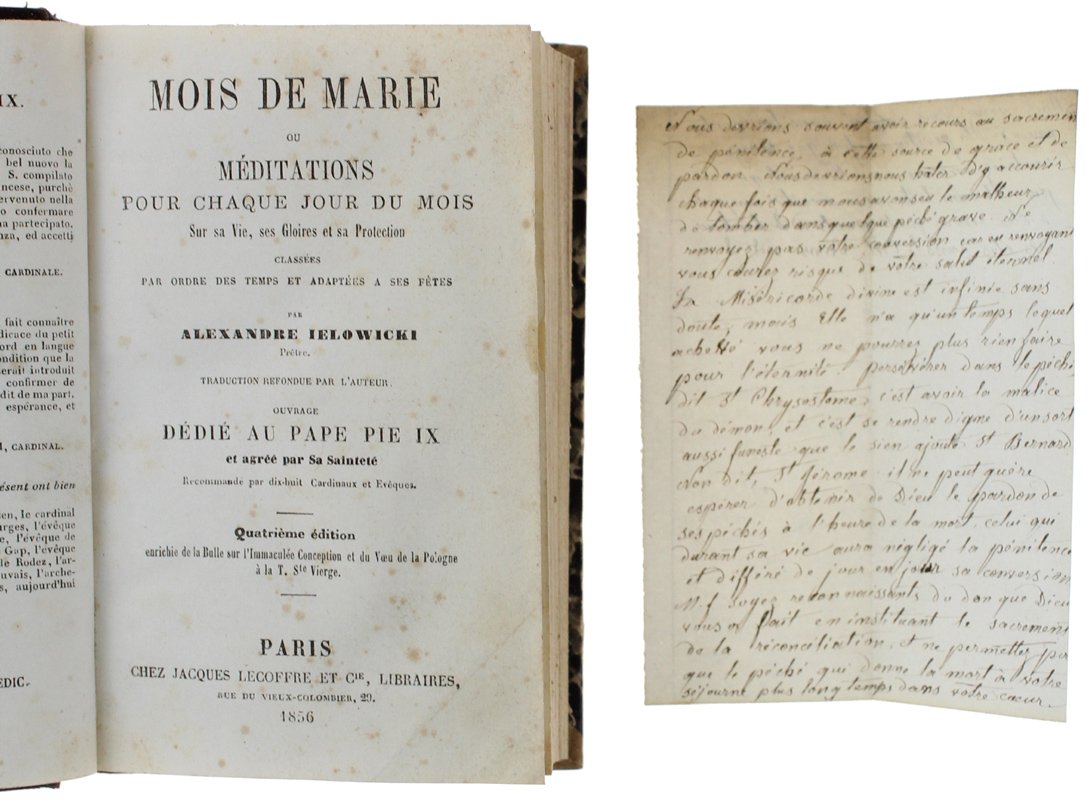 IX.
conosciuto che
bel nuovo la
S. compilato
ncese, purchè
ervenuto nella
o confermare
na partecipato,
nza, ed accetti
CARDINALE.
fait connaître
dicace du petit
ord en langue
ondition que la
serait introduit
confirmer de
dit de ma part.
espérance, et
I, CARDINAL.
ésent ont bien
sen, le cardinal
urges, l'évêque
e, l'évêque de
Gap, l'évêque
le Rodez, l'ar-
uvais, l'arche-
s, aujourd'hui
EDIC.
MOIS DE MARIE
OU
MÉDITATIONS
POUR CHAQUE JOUR DU MOIS
Sur sa Vie, ses Gloires et sa Protection
CLASSÉES
PAR ORDRE DES TEMPS ET ADAPTÉES A SES FÊTES
PAR
ALEXANDRE IELOWICKI
Prêtre.
TRADUCTION REFONDUE PAR L'AUTEUR.
OUVRAGE
DÉDIÉ AU PAPE PIE IX
et agréé par Sa Sainteté
Recommandé par dix-huit Cardinaux et Evêques.
Quatrième édition
enrichie de la Bulle sur l'Immaculée Conception et du Vœu de la Pologne
à la T. Ste Vierge.
PARIS
CHEZ JACQUES LECOFFRE ET CIE, LIBRAIRES,
RUE DU VIEUX-COLOMBIER, 29.
1856
Nous devrions souvent avoir recours au sacremen
de pénitence, à cette source de grâce et de
pardon. Nous devrions nous hâter d'y accourir
chaque fois que nous avons eu le malheur
de tomber dans quelque péché grave. Ne
renvoyez pas votre conversion car en renvoyant
vous courez risque de votre salut éternel.
La Miséricorde divine est infinie sans
doute, mais Elle n'a qu'un temps lequel
achetté vous ne pourrez plus rien faire
pour l'éternité. Persévérer dans le péché
dit St Chrysostome, c'est avoir la malice
du démon, et c'est se rendre digne d'un sort
aussi funeste que le sien ajoute St Bernard
Non Dit, St Jérome, il ne peut guère
espérer d'obtenir de Dieu le pardon de
ses péchés à l'heure de la mort, celui qui
durant sa vie aura négligé la pénitence
et différé de jour en jour sa conversion
M. f. Soyez reconnaissants du don que Dieu
vous a fait en instituant le sacrement
de la réconciliation, et ne permettez pas
que le péché qui donne la mort à votre
séjourne plus longtemps dans votre cœur.